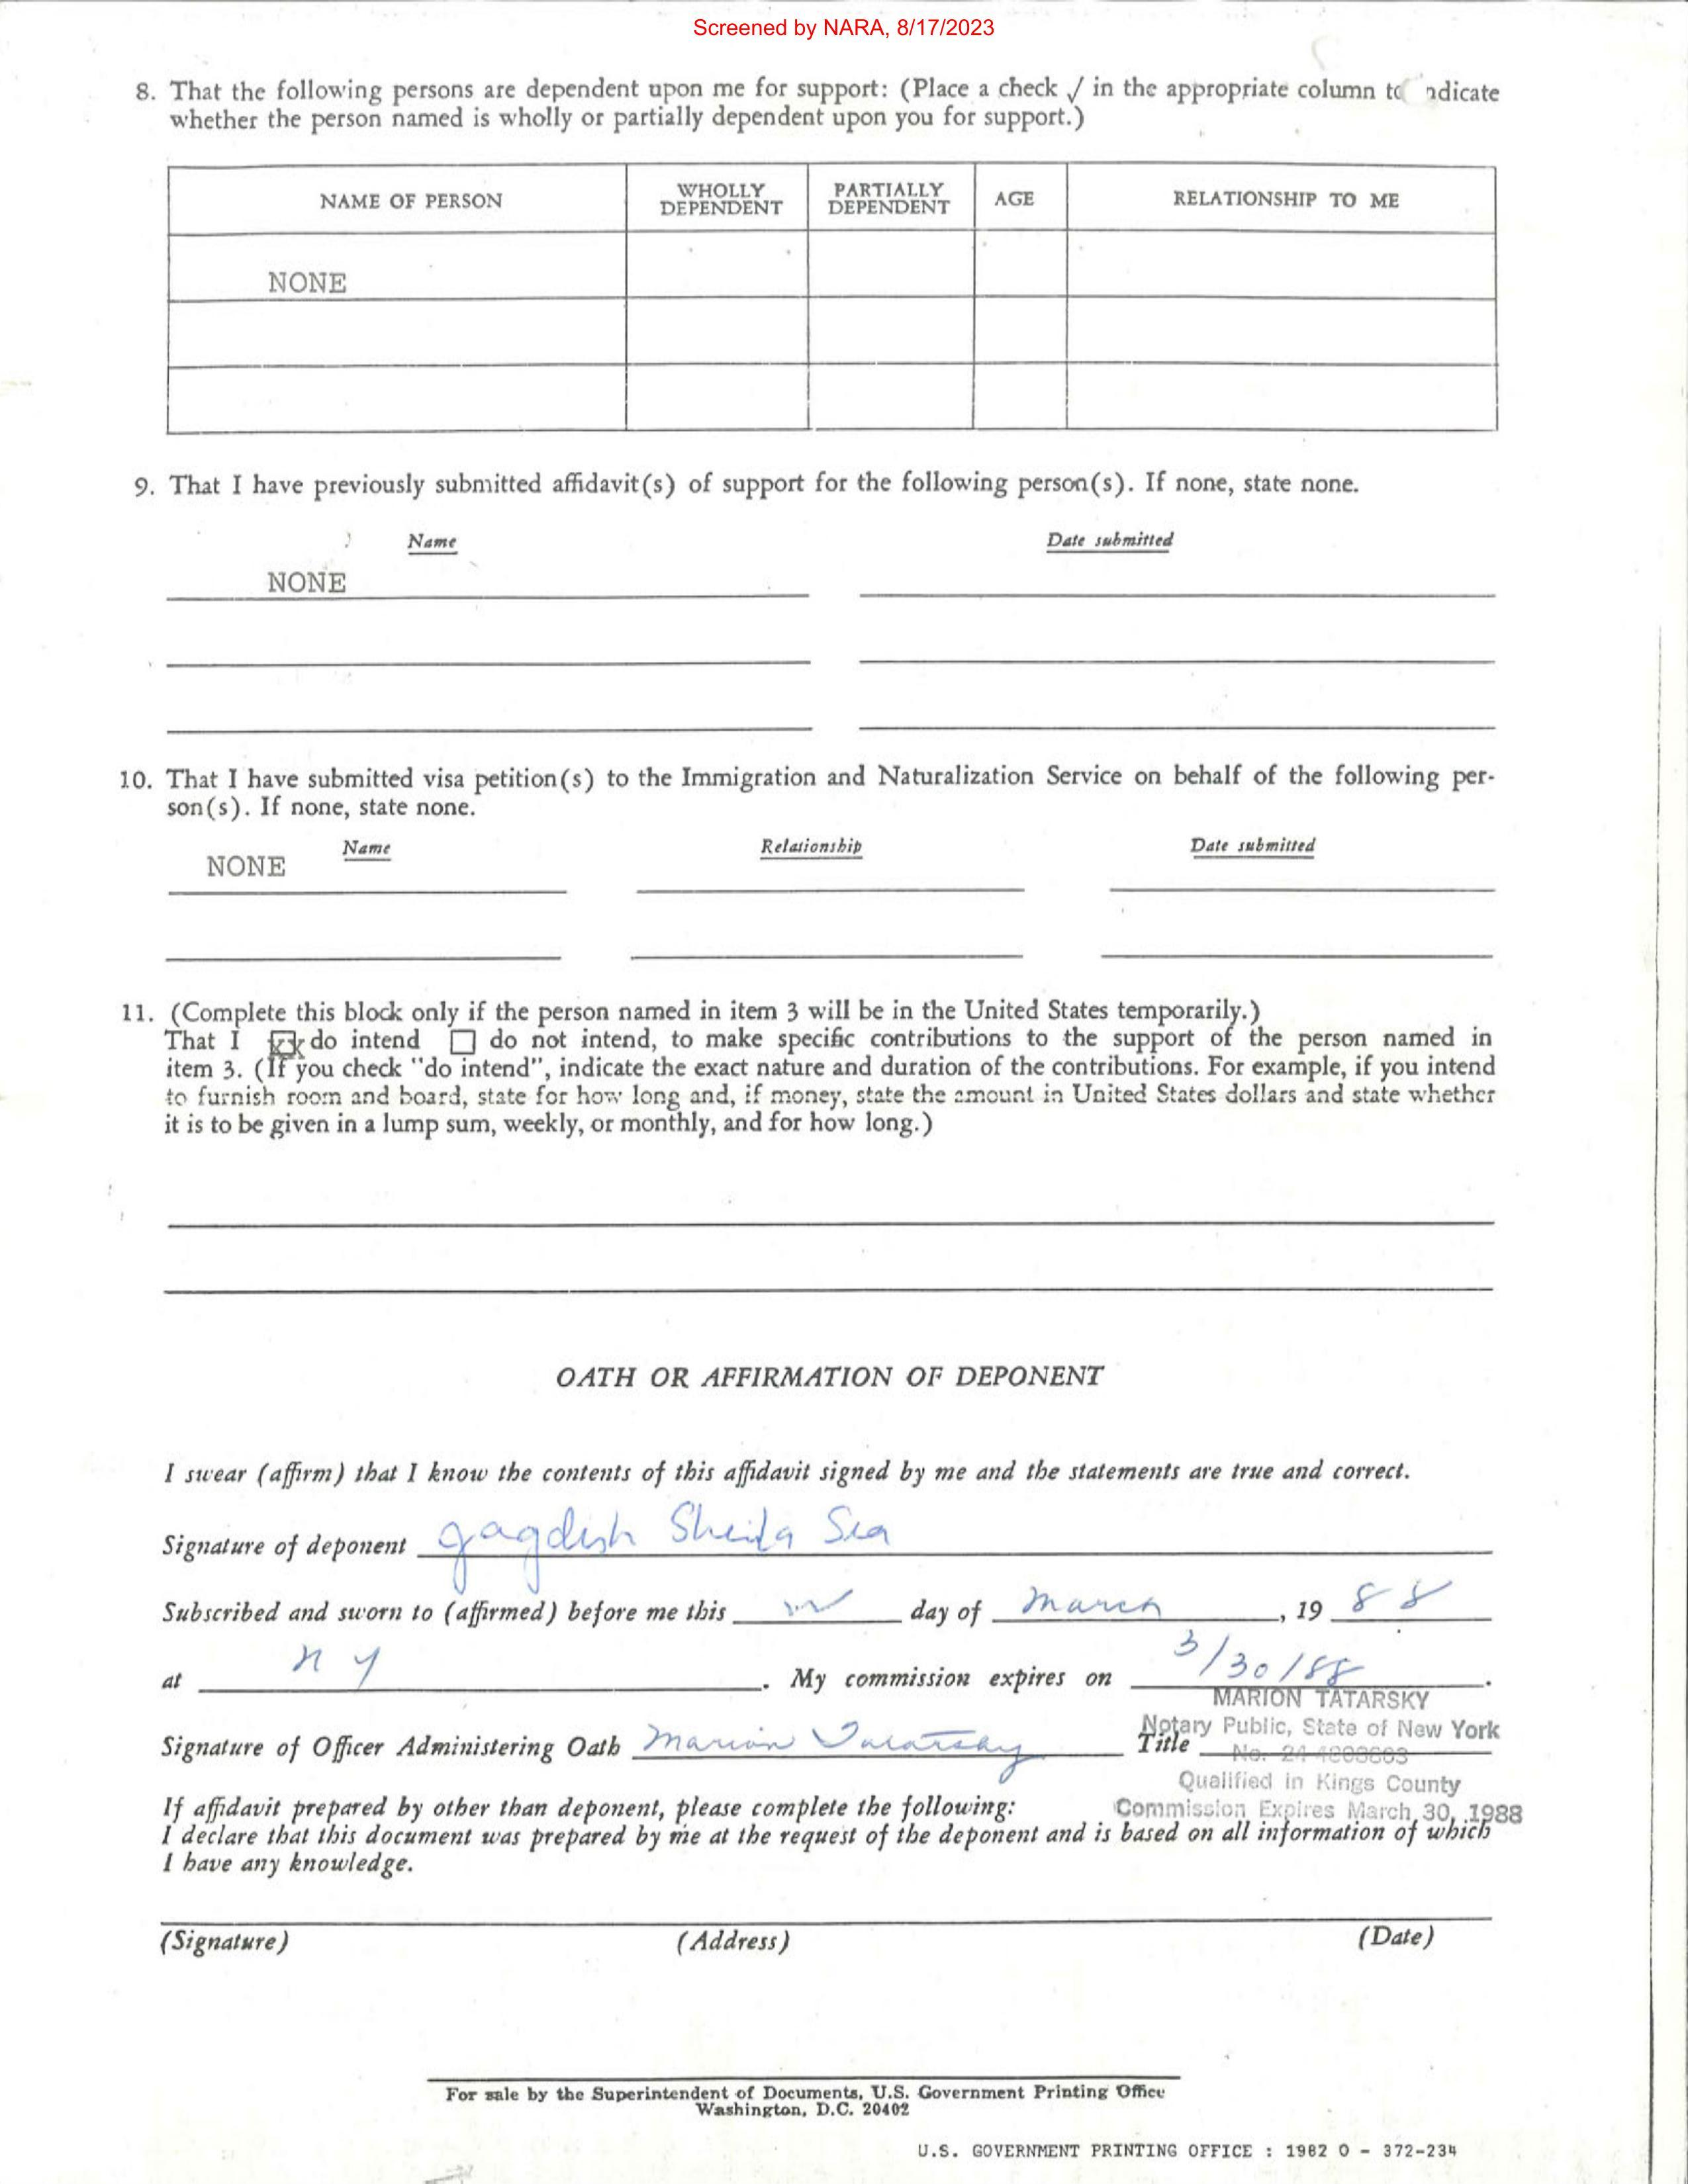 Screened by NARA, 8/17/2023
8. That the following persons are dependent upon me for support: (Place a check √ in the appropriate column to ndicate
whether the person named is wholly or partially dependent upon you for support.)
NAME OF PERSON
WHOLLY DEPENDENT
PARTIALLY DEPENDENT
AGE
RELATIONSHIP TO ME
NONE
9. That I have previously submitted affidavit(s) of support for the following person(s). If none, state none.
Name Date submitted
NONE
10. That I have submitted visa petition(s) to the Immigration and Naturalization Service on behalf of the following per-
son(s). If none, state none.
Name Relationship Date submitted
NONE
11. (Complete this block only if the person named in item 3 will be in the United States temporarily.)
That I xx do intend ☐ do not intend, to make specific contributions to the support of the person named in
item 3. (If you check "do intend", indicate the exact nature and duration of the contributions. For example, if you intend
to furnish room and board, state for how long and, if money, state the amount in United States dollars and state whether
it is to be given in a lump sum, weekly, or monthly, and for how long.)
OATH OR AFFIRMATION OF DEPONENT
I swear (affirm) that I know the contents of this affidavit signed by me and the statements are true and correct.
Signature of deponent Jagdish Sheila
Subscribed and sworn to (affirmed) before me this day of March, 19 88
at NY. My commission expires on 3/30/88.
MARION TATARSKY
Notary Public, State of New York
Signature of Officer Administering Oath Marion Tatarsky Title
No. 24
Qualified in Kings County
Commission Expires March 30, 1988
If affidavit prepared by other than deponent, please complete the following:
I declare that this document was prepared by me at the request of the deponent and is based on all information of which
I have any knowledge.
(Signature) (Address) (Date)
For sale by the Superintendent of Documents, U.S. Government Printing Office
Washington, D.C. 20402
U.S. GOVERNMENT PRINTING OFFICE : 1982 O - 372-234